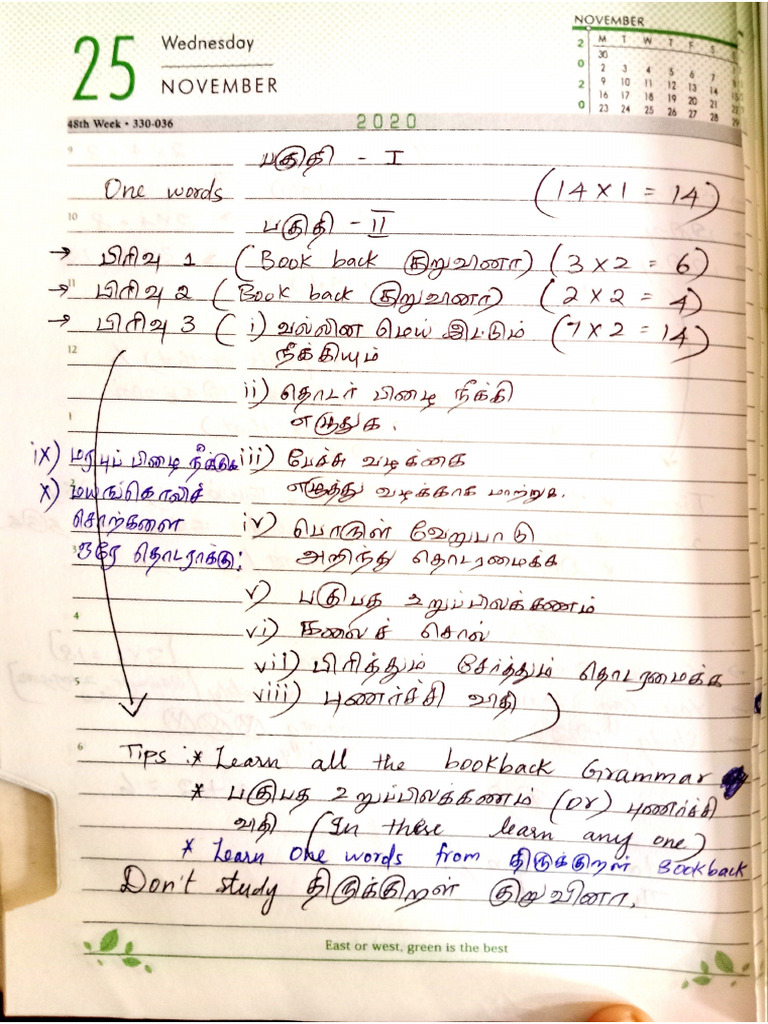 25 Wednesday
NOVEMBER
NOVEMBER
2020
M T W T F S
30
2 3 4 5 6 7
9 10 11 12 13 14
16 17 18 19 20 21
23 24 25 26 27 28 29
48th Week • 330-036
2020
9
பகுதி - I
One words (14 x 1 = 14)
10
பகுதி - II
→ பிரிவு 1 (Book back குறுவினா) (3 x 2 = 6)
11
→ பிரிவு 2 (Book back குறுவினா) (2 x 2 = 4)
→ பிரிவு 3 (i) வல்லின மெய் இட்டும் (7 x 2 = 14)
12
நீக்கியும்
ii) தொடர் பிழை நீக்கி
1
எழுதுக.
ix) மரபுப் பிழை நீக்குக iii) பேச்சு வழக்கை
2
x) மயங்கொலிச் எழுத்து வழக்காக மாற்றுக.
சொற்களை iv) பொருள் வேறுபாடு
3
ஒரே தொடராக்கு: அறிந்து தொடரமைக்க
v) பகுபத உறுப்பிலக்கணம்
4
vi) கலைச் சொல்
vii) பிரித்தும் சேர்த்தும் தொடரமைக்க
5
viii) புணர்ச்சி விதி )
6
Tips : * Learn all the bookback Grammar
* பகுபத உறுப்பிலக்கணம் (or) புணர்ச்சி
விதி (In these learn any one)
* Learn One words from திருக்குறள் Bookback
Don't study திருக்குறள் குறுவினா.
East or west, green is the best